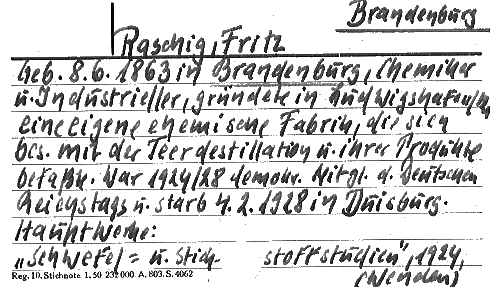 Brandenburg
Raschig, Fritz
Geb. 8.6.1863 in Brandenburg, Chemiker
u. Industrieller, gründete in Ludwigshafen/Rh,
eine eigene chemische Fabrik, die sich
bes. mit der Teerdestillation u. ihrer Produkte
befaßte. War 1924/28 demokr. Mitgl. d. Deutschen
Reichstags u. starb 4.2.1928 in Duisburg.
Hauptwerke:
„Schwefel= u. Stick- stoffstudien", 1924,
Reg. 10. Stichnote 1. 50 232000 A. 803. S. 4062